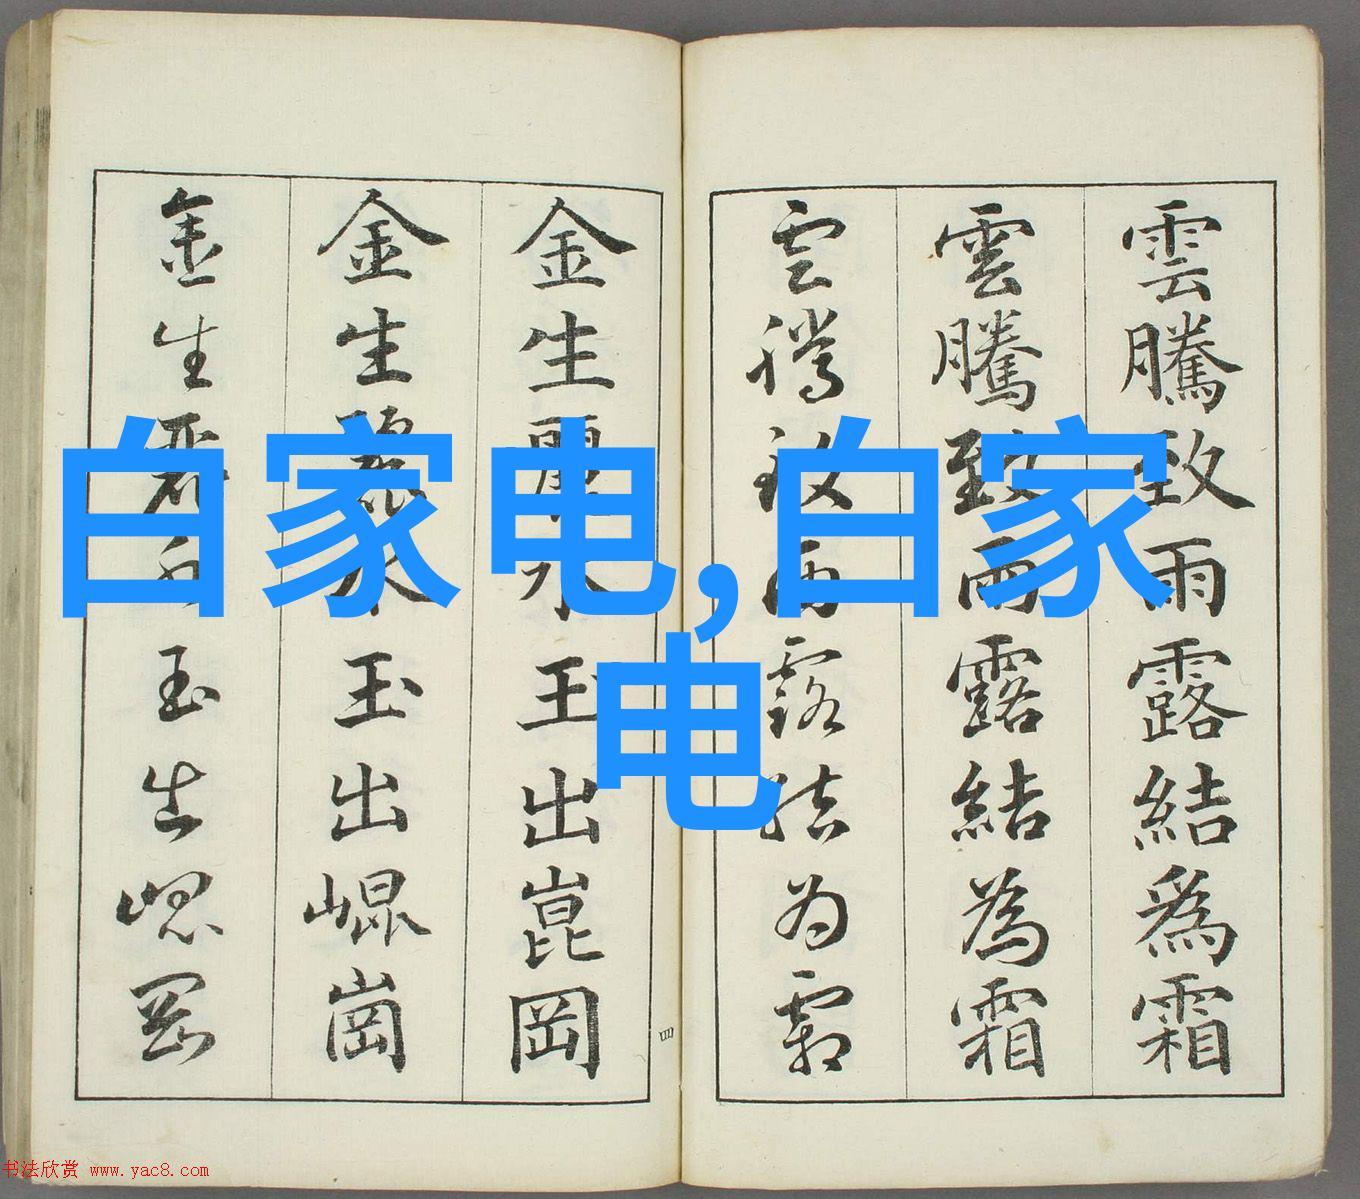 雲騰致雨露結爲霜
雲騰致雨露結為霜
雲騰致雨露结为霜
金生麗水玉出崑岡
金生麗水玉出崐崗
金生麗水玉出崐岡
四
白家电,白家
电
书法欣赏 www.yac8.com